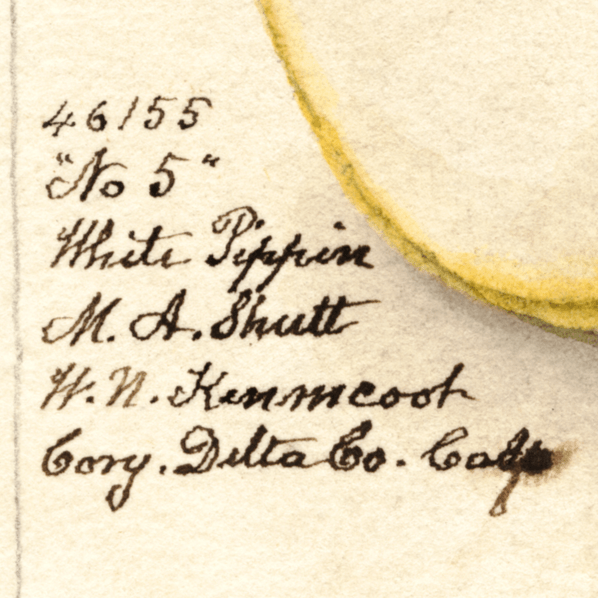 46155
"No 5"
White Pippin
M. A. Shutt
W. N.
Cory. Delta Co.